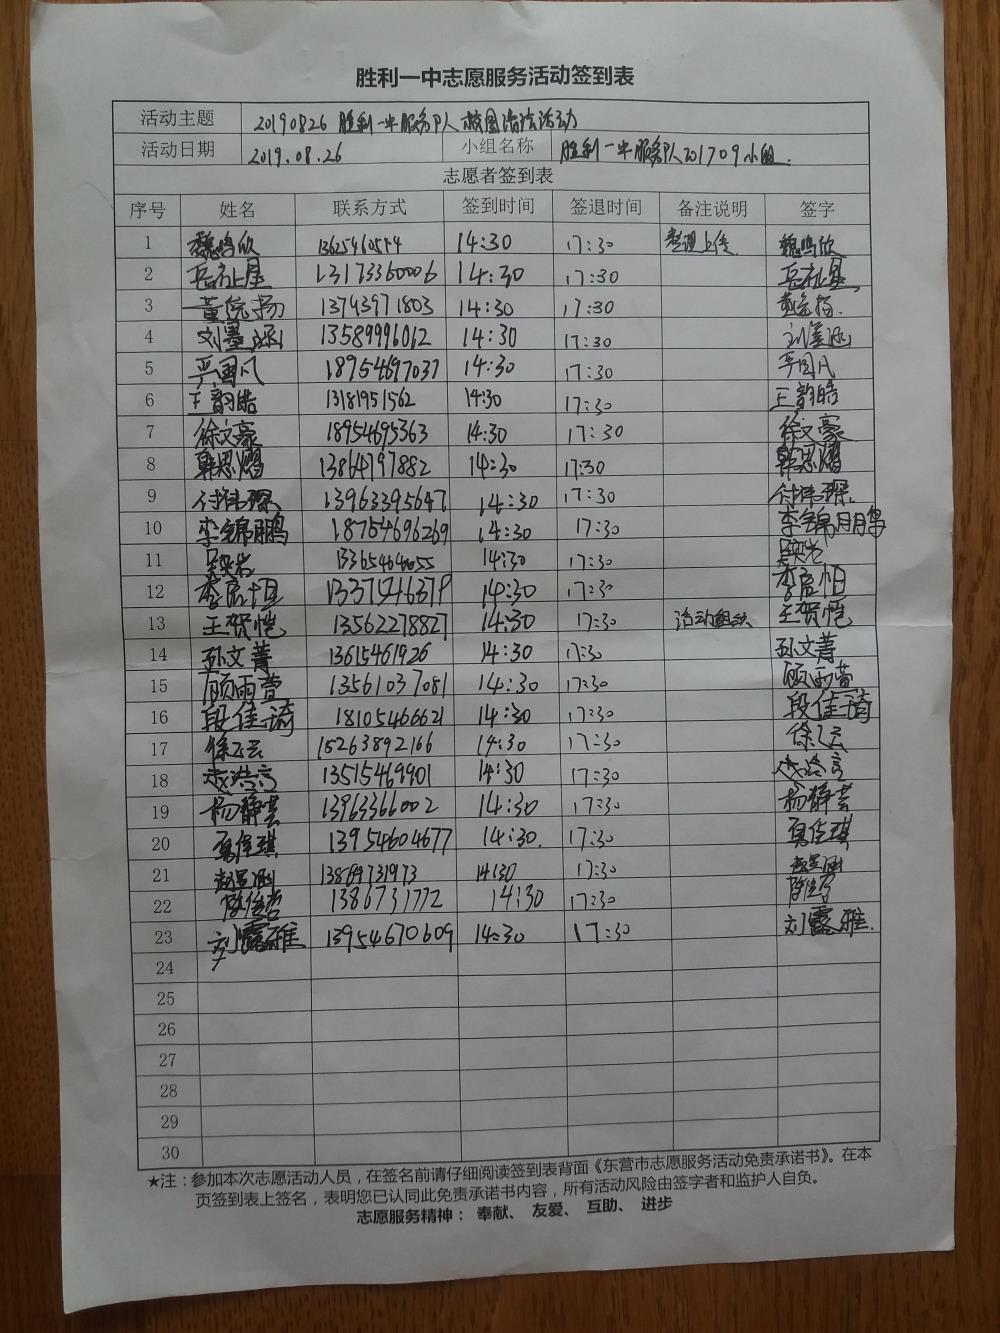 胜利一中志愿服务活动签到表
活动主题 20190826 胜利一中服务队校园清洁活动
活动日期 2019.08.26 小组名称 胜利一中服务队201709小组.
志愿者签到表
序号 姓名 联系方式 签到时间 签退时间 备注说明 签字
1 魏鸣欣 13625460544 14:30 17:30 整理上传 魏鸣欣
2 13173360006 14:30 17:30
3 13743971803 14:30 17:30
4 刘墨涵 13589996012 14:30 17:30 刘墨涵
5 18954697037 14:30 17:30
6 王韵皓 13181951562 14:30 17:30 王韵皓
7 徐文豪 18954695363 14:30 17:30 徐文豪
8 韩思熠 13864797882 14:30 17:30 韩思熠
9 付伟琛 13963395647 14:30 17:30 付伟琛
10 李锦鹏 18754696269 14:30 17:30 李锦鹏
11 14:30 17:30
12 14:30 17:30
13 王贺恺 13562278827 14:30 17:30 活动组织 王贺恺
14 孙文菁 13615461926 14:30 17:30 孙文菁
15 顾雨萱 13561037081 14:30 17:30 顾雨萱
16 段佳琦 18105466621 14:30 17:30 段佳琦
17 15263892166 14:30 17:30
18 13515469901 14:30 17:30
19 杨静芸 13963366002 14:30 17:30 杨静芸
20 13954604677 14:30. 17:30
21 13869731973 14:30 17:30
22 1386731772 14:30 17:30
23 刘露雅 13954670609 14:30 17:30 刘露雅.
24
25
26
27
28
29
30
★注：参加本次志愿活动人员，在签名前请仔细阅读签到表背面《东营市志愿服务活动免责承诺书》。在本
页签到表上签名，表明您已认同此免责承诺书内容，所有活动风险由签字者和监护人自负。
志愿服务精神： 奉献、 友爱、 互助、 进步